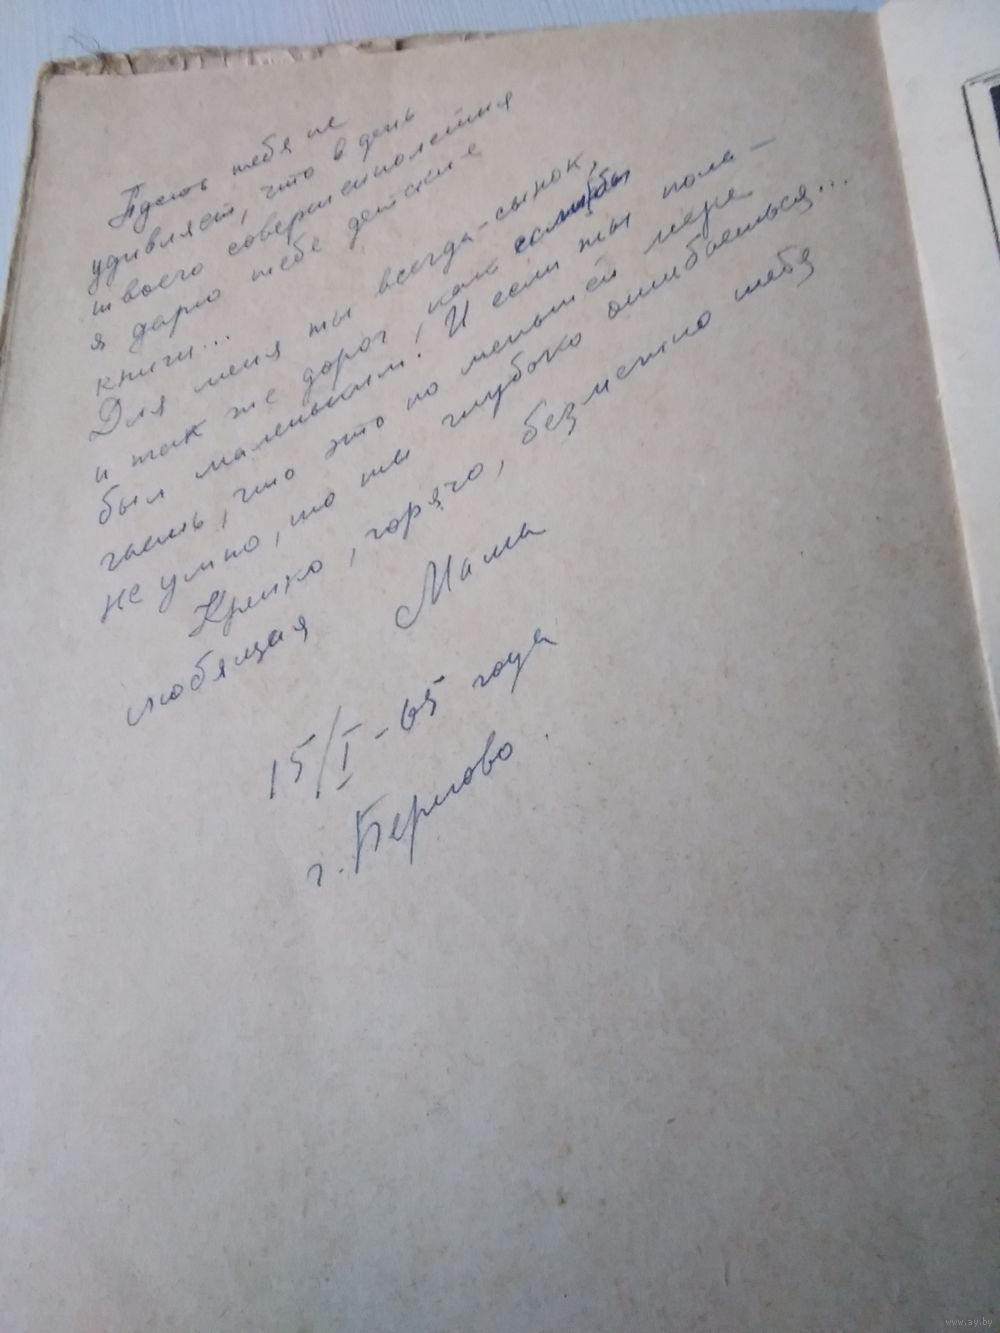 Пусть тебя не
удивляет, что в день
твоего совершеннолетия
я дарю тебе детские
книги...
Для меня ты всегда - сынок,
и так же дорог, как если бы
был маленьким. И если ты пола-
гаешь, что это по меньшей мере
не умно, то ты глубоко ошибаешься...
Крепко, горячо, безмерно тебя
любящая Мама
15/I-65 года
г.
www.ay.by